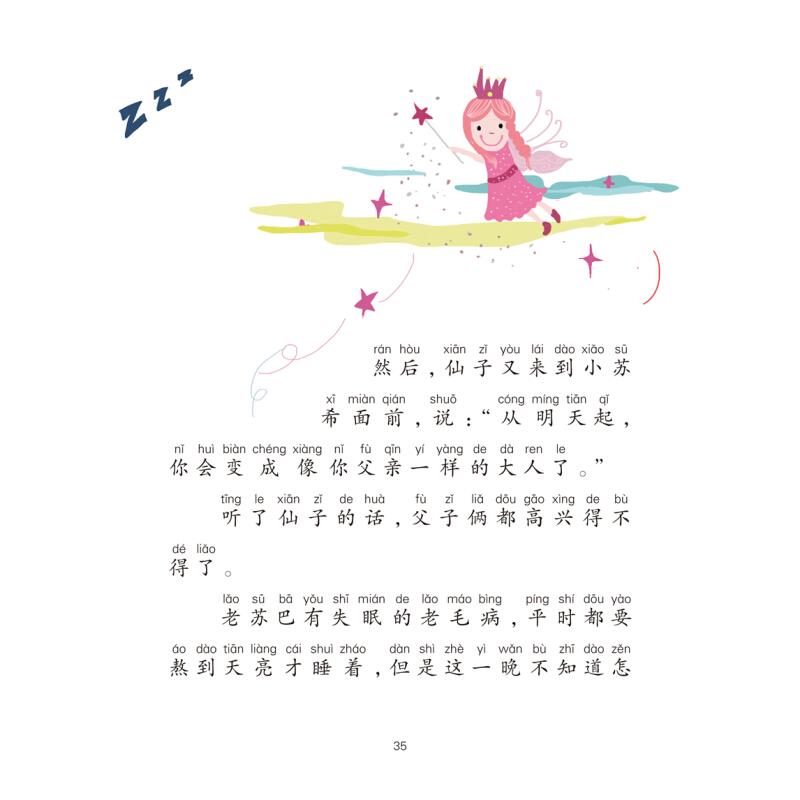 Z z z
rán hòu xiān zǐ yòu lái dào xiǎo sū
然后，仙子又来到小苏
xī miàn qián shuō cóng míng tiān qǐ
希面前，说：“从明天起，
nǐ huì biàn chéng xiàng nǐ fù qīn yí yàng de dà ren le
你会变成像你父亲一样的大人了。”
tīng le xiān zǐ de huà fù zǐ liǎ dōu gāo xìng de bù
听了仙子的话，父子俩都高兴得不
dé liǎo
得了。
lǎo sū bā yǒu shī mián de lǎo máo bìng píng shí dōu yào
老苏巴有失眠的老毛病，平时都要
áo dào tiān liàng cái shuì zháo dàn shì zhè yì wǎn bù zhī dào zěn
熬到天亮才睡着，但是这一晚不知道怎
35